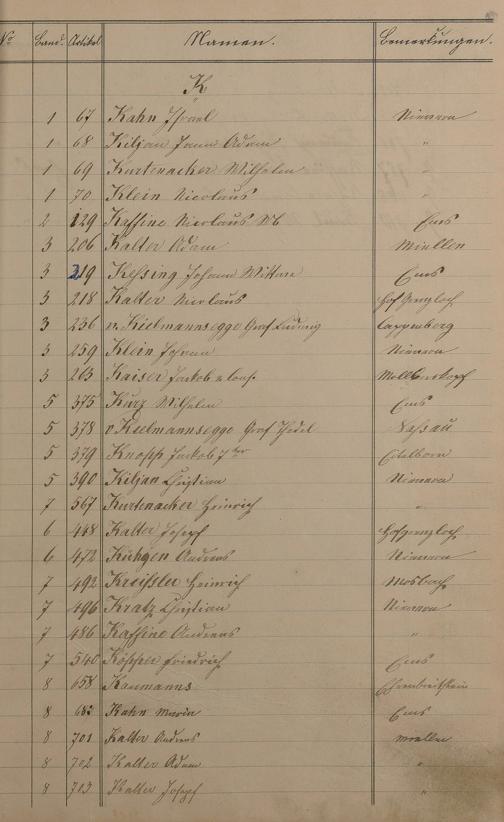 No Band. Artikel Namen. Bemerkungen.
K
1 67 Kahn Israel Nievern
1 68 Kiljan Adam "
1 69 Kurtenacker Wilhelm "
1 70 Klein Nicolaus "
2 129 Kaffine Nicolaus Ems
3 206 Kalter Adam Miellen
3 219 Kessing Johann Wittwe Ems
3 218 Kalter Nicolaus
3 236 v. Kielmannsegge Graf Ludwig Cappenberg
3 259 Klein Johann Nievern
3 263 Kaiser Jackob
5 375 Kurz Wilhelm Ems
5 378 v Kielmannsegge Graf Nassau
5 379 Knopp Jackob Eitelborn
5 390 Kiljan Christian Nievern
7 567 Kurtenacker Heinrich "
6 448 Kalter Josef
6 472 Andreas Nievern
7 492 Kreissler Heinrich Mosbach
7 496 Kratz Christian Nievern
7 486 Kaffine Andreas "
7 540 Friedrich Ems
8 658 Kaumanns Ehrenbreitstein
8 683 Kahn Maria Ems
8 701 Kalter Andreas Miellen
8 702 Kalter Adam "
8 703 Kalter Josef "